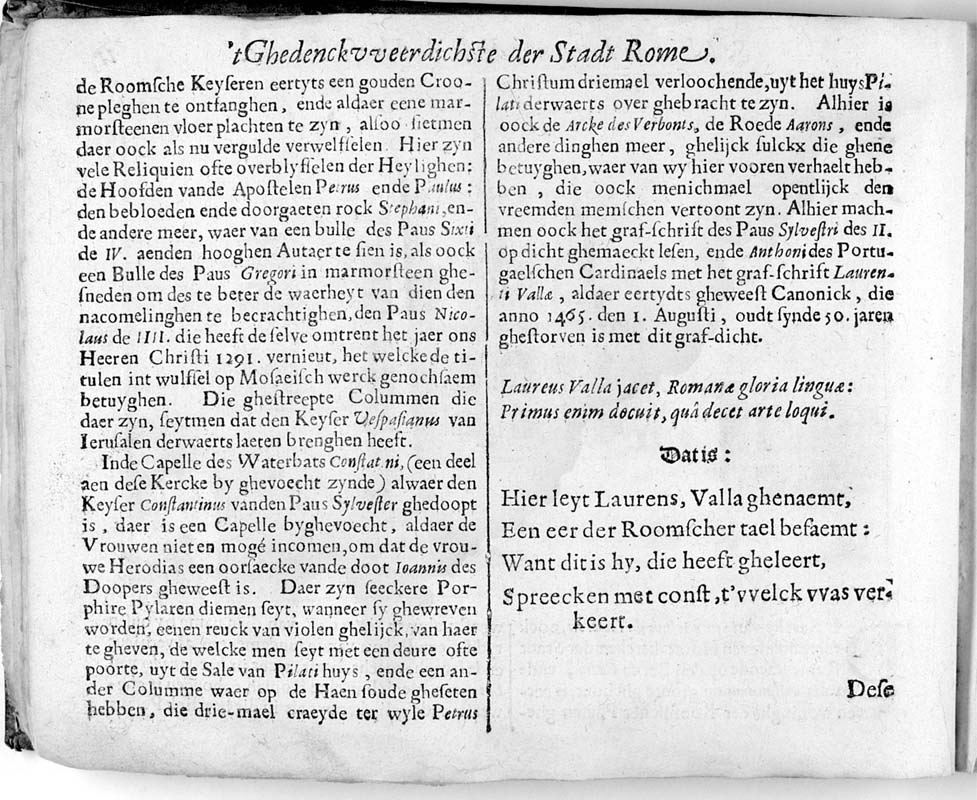 'tGhedenckvveerdichste der Stadt Rome.
de Roomsche Keyseren eertyts een gouden Croo-
ne pleghen te ontfanghen, ende aldaer eene mar-
morsteenen vloer plachten te zyn, alsoo sietmen
daer oock als nu vergulde verwelfselen. Hier zyn
vele Reliquien ofte overblyfselen der Heylighen:
de Hoofden vande Apostelen Petrus ende Paulus:
den bebloeden ende doorgaeten rock Stephani, en-
de andere meer, waer van een bulle des Paus Sixti
de IV. aenden hooghen Autaer te sien is, als oock
een Bulle des Paus Gregori in marmorsteen ghe-
sneden om des te beter de waerheyt van dien den
nacomelinghen te becrachtighen, den Paus Nico-
laus de IIII. die heeft de selve omtrent het jaer ons
Heeren Christi 1291. vernieut, het welcke de ti-
tulen int wulfsel op Mosaeisch werck genochsaem
betuyghen. Die ghestreepte Columnen die
daer zyn, seytmen dat den Keyser Vespasianus van
Ierusalen derwaerts laeten brenghen heeft.
Inde Capelle des Waterbats Constat.ni, (een deel
aen dese Kercke by ghevoecht zynde) alwaer den
Keyser Constantinus vanden Paus Sylvester ghedoopt
is, daer is een Capelle byghevoecht, aldaer de
Vrouwen niet en mogé incomen, om dat de vrou-
we Herodias een oorsaecke vande doot Ioannis des
Doopers gheweest is. Daer zyn seeckere Por-
phire Pylaren diemen seyt, wanneer sy ghewreven
worden, eenen reuck van violen ghelijck, van haer
te gheven, de welcke men seyt met een deure ofte
poorte, uyt de Sale van Pilati huys, ende een an-
der Columme waer op de Haen soude gheseten
hebben, die drie-mael craeyde ter wyle Petrus
Christum driemael verloochende, uyt het huys Pi-
lati derwaerts over ghebracht te zyn. Alhier is
oock de Arcke des Verbonts, de Roede Aarons, ende
andere dinghen meer, ghelijck sulckx die ghene
betuyghen, waer van wy hier vooren verhaelt heb-
ben, die oock menichmael opentlijck den
vreemden memschen vertoont zyn. Alhier mach-
men oock het graf-schrift des Paus Sylvestri des II.
op dicht ghemaeckt lesen, ende Anthoni des Portu-
gaelschen Cardinaels met het graf-schrift Lauren-
ti Vallæ, aldaer eertydts gheweest Canonick, die
anno 1465. den 1. Augusti, oudt synde 50. jaren
ghestorven is met dit graf-dicht.
Laureus Valla jacet, Romanæ gloria linguæ:
Primus enim docuit, quâ decet arte loqui.
Datis:
Hier leyt Laurens, Valla ghenaemt,
Een eer der Roomscher tael befaemt:
Want dit is hy, die heeft gheleert,
Spreecken met const, t'vvelck vvas ver-
keert.
Dese